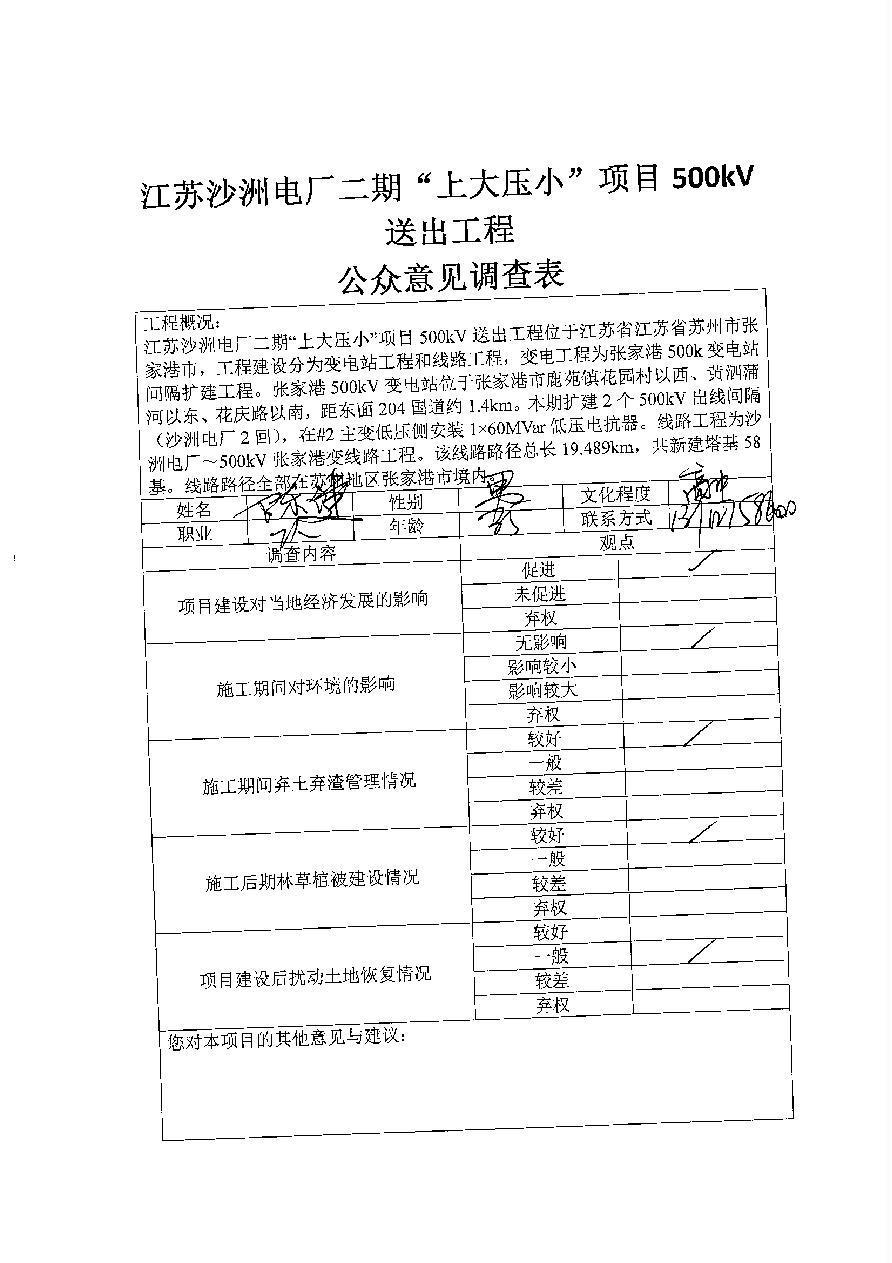 江苏沙洲电厂二期“上大压小”项目 500kV
送出工程
公众意见调查表
工程概况：
江苏沙洲电厂二期“上大压小”项目 500kV 送出工程位于江苏省江苏省苏州市张
家港市，工程建设分为变电站工程和线路工程，变电工程为张家港 500k 变电站
间隔扩建工程。张家港 500kV 变电站位于张家港市鹿苑镇花园村以西、黄泗浦
河以东、花庆路以南，距东面 204 国道约 1.4km。本期扩建 2 个 500kV 出线间隔
（沙洲电厂 2 回），在#2 主变低压侧安装 1×60MVar 低压电抗器。线路工程为沙
洲电厂～500kV 张家港变线路工程。该线路路径总长 19.489km，共新建塔基 58
基。线路路径全部在苏州地区张家港市境内。
姓名 陈 性别 男 文化程度 高中
职业 年龄 联系方式
调查内容 观点
项目建设对当地经济发展的影响
促进 ✓
未促进
弃权
施工期间对环境的影响
无影响 ✓
影响较小
影响较大
弃权
施工期间弃土弃渣管理情况
较好 ✓
一般
较差
弃权
施工后期林草植被建设情况
较好 ✓
一般
较差
弃权
项目建设后扰动土地恢复情况
较好
一般 ✓
较差
弃权
您对本项目的其他意见与建议：